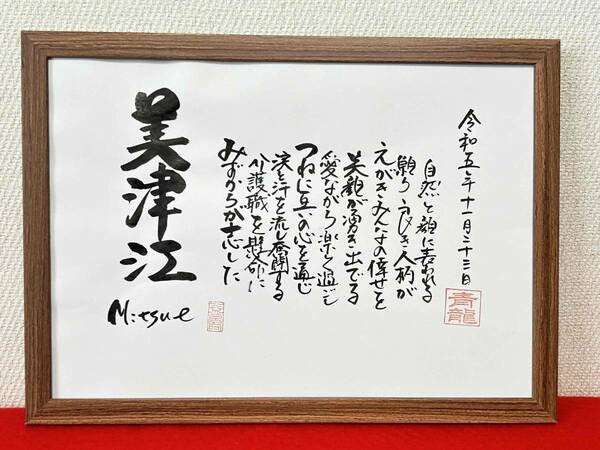 令和五年十一月二十三日
自然と顔に表われる
人柄が
えがきみんなの倖せを
笑顔が湧き出でる
愛ながら楽しく過ごし
つねに互いの心を通じ
涙と汗を流し奮闘する
介護職を懸命に
みずからが志した
美津江
Mitsue
青龍